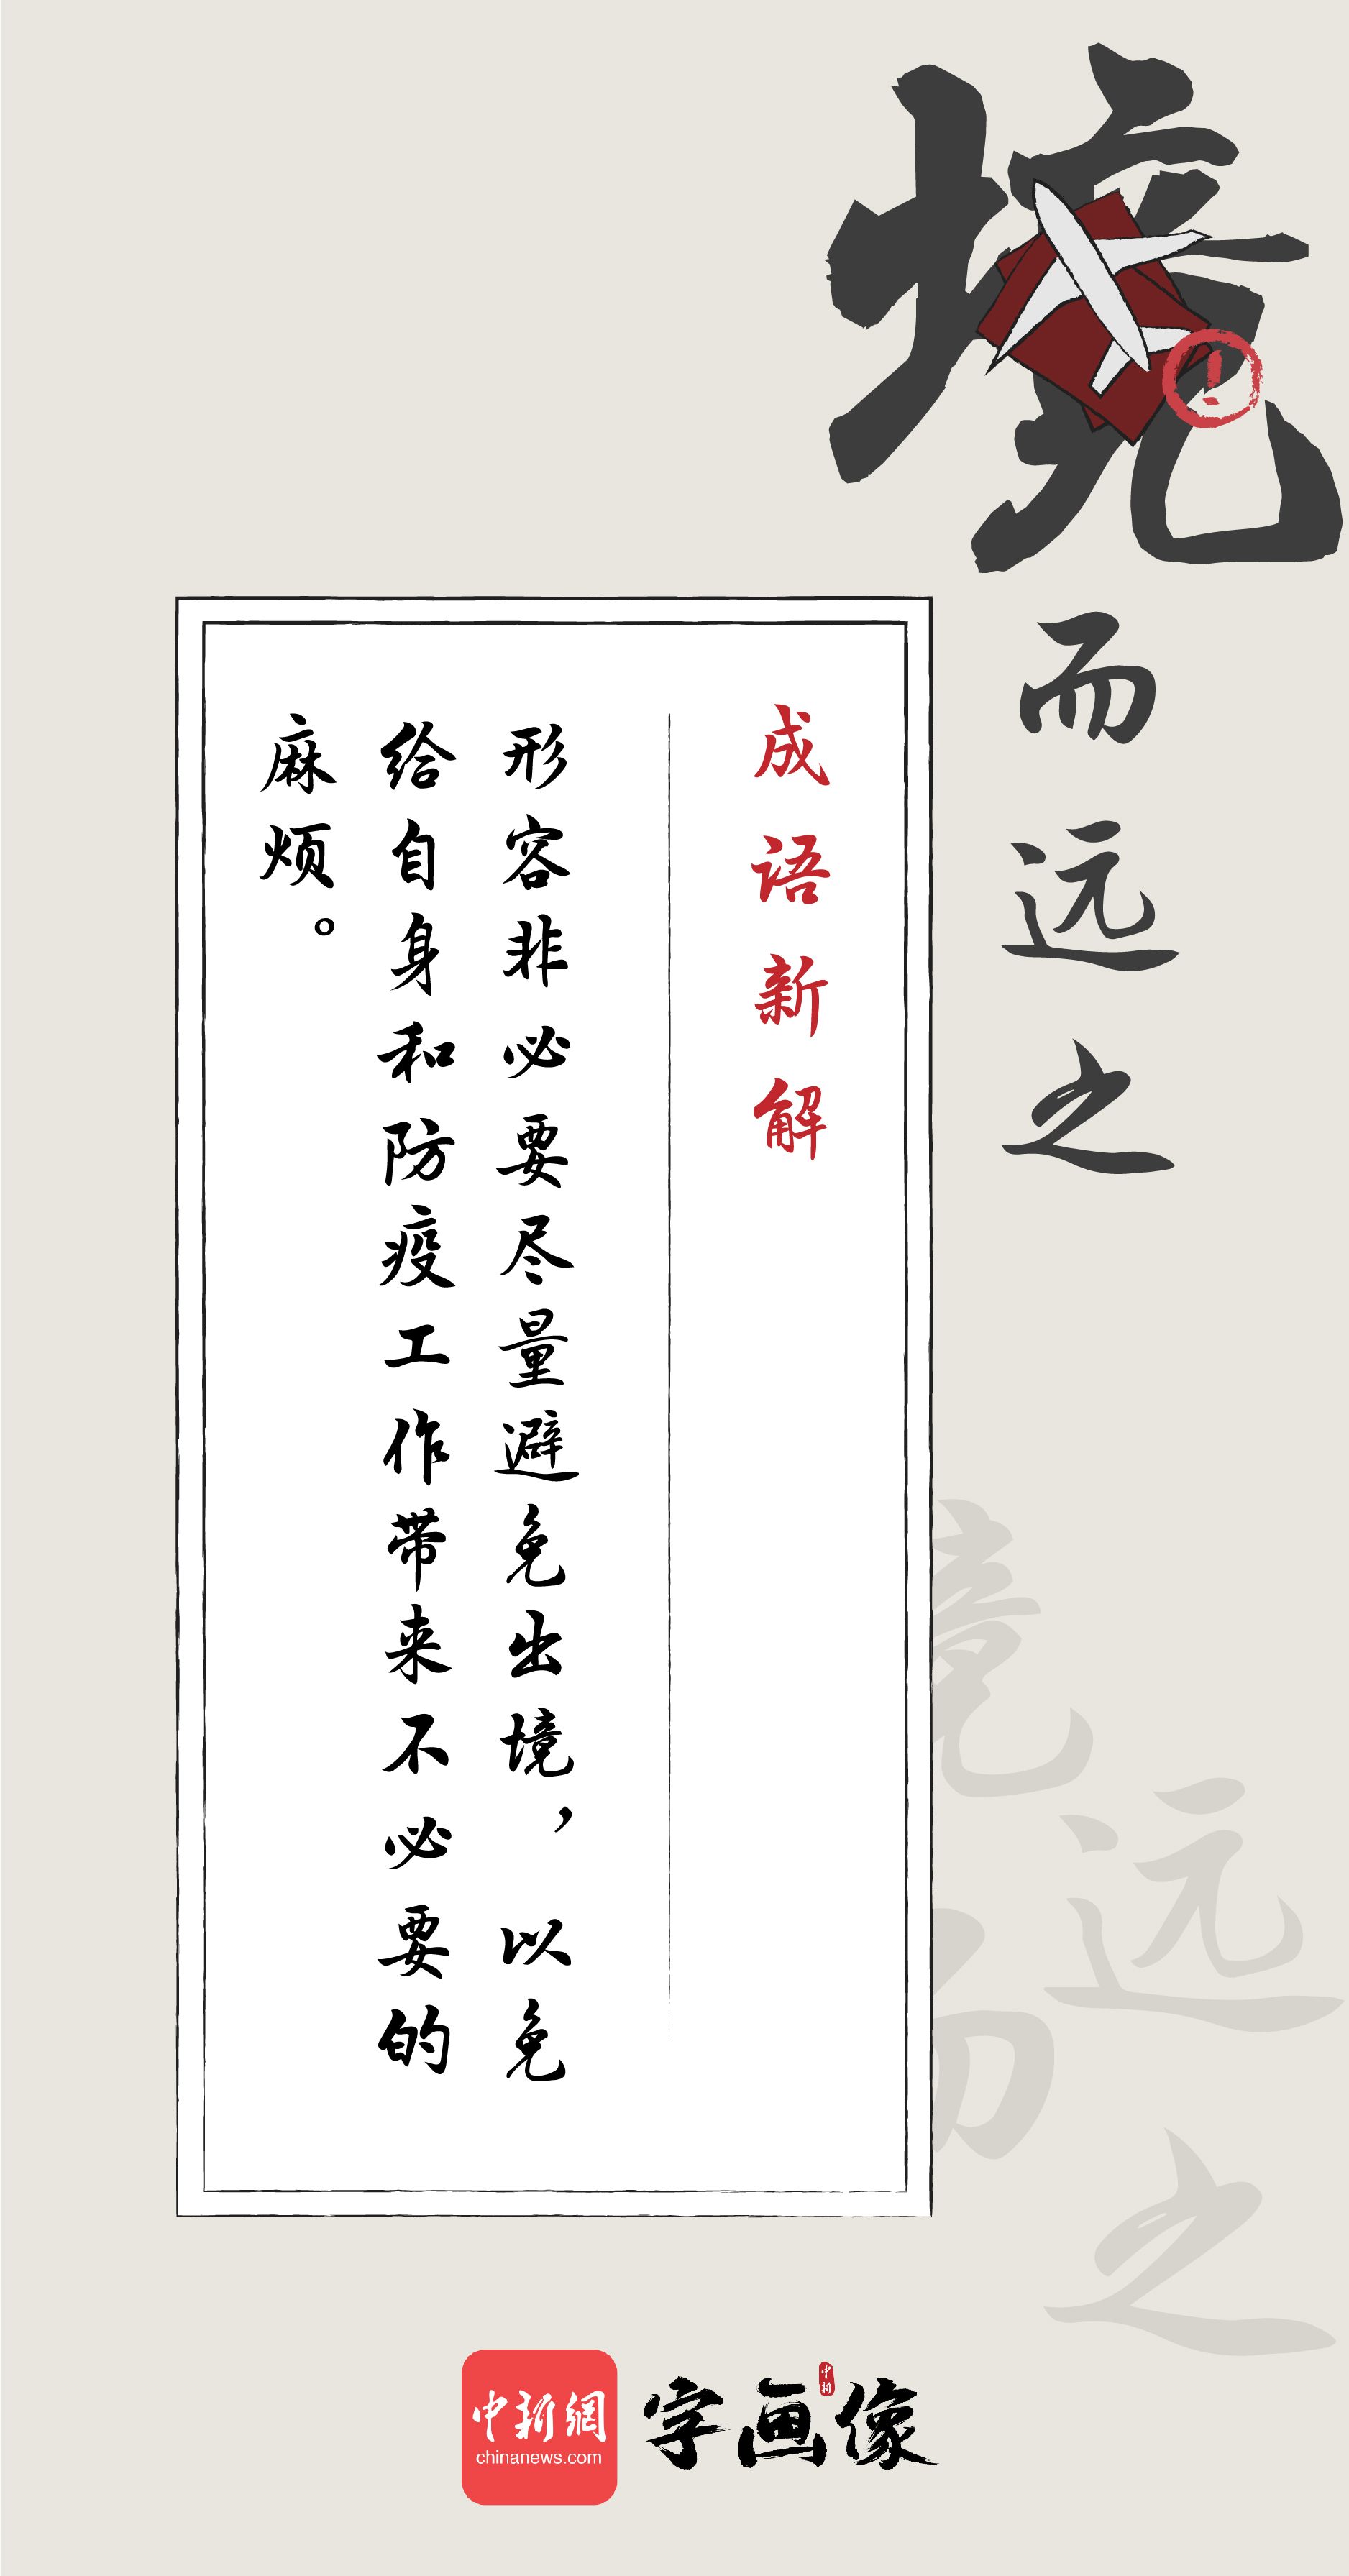 境而远之
成语新解
形容非必要尽量避免出境，以免
给自身和防疫工作带来不必要的
麻烦。
境而远之
中新網
chinanews.com
字画像
中新